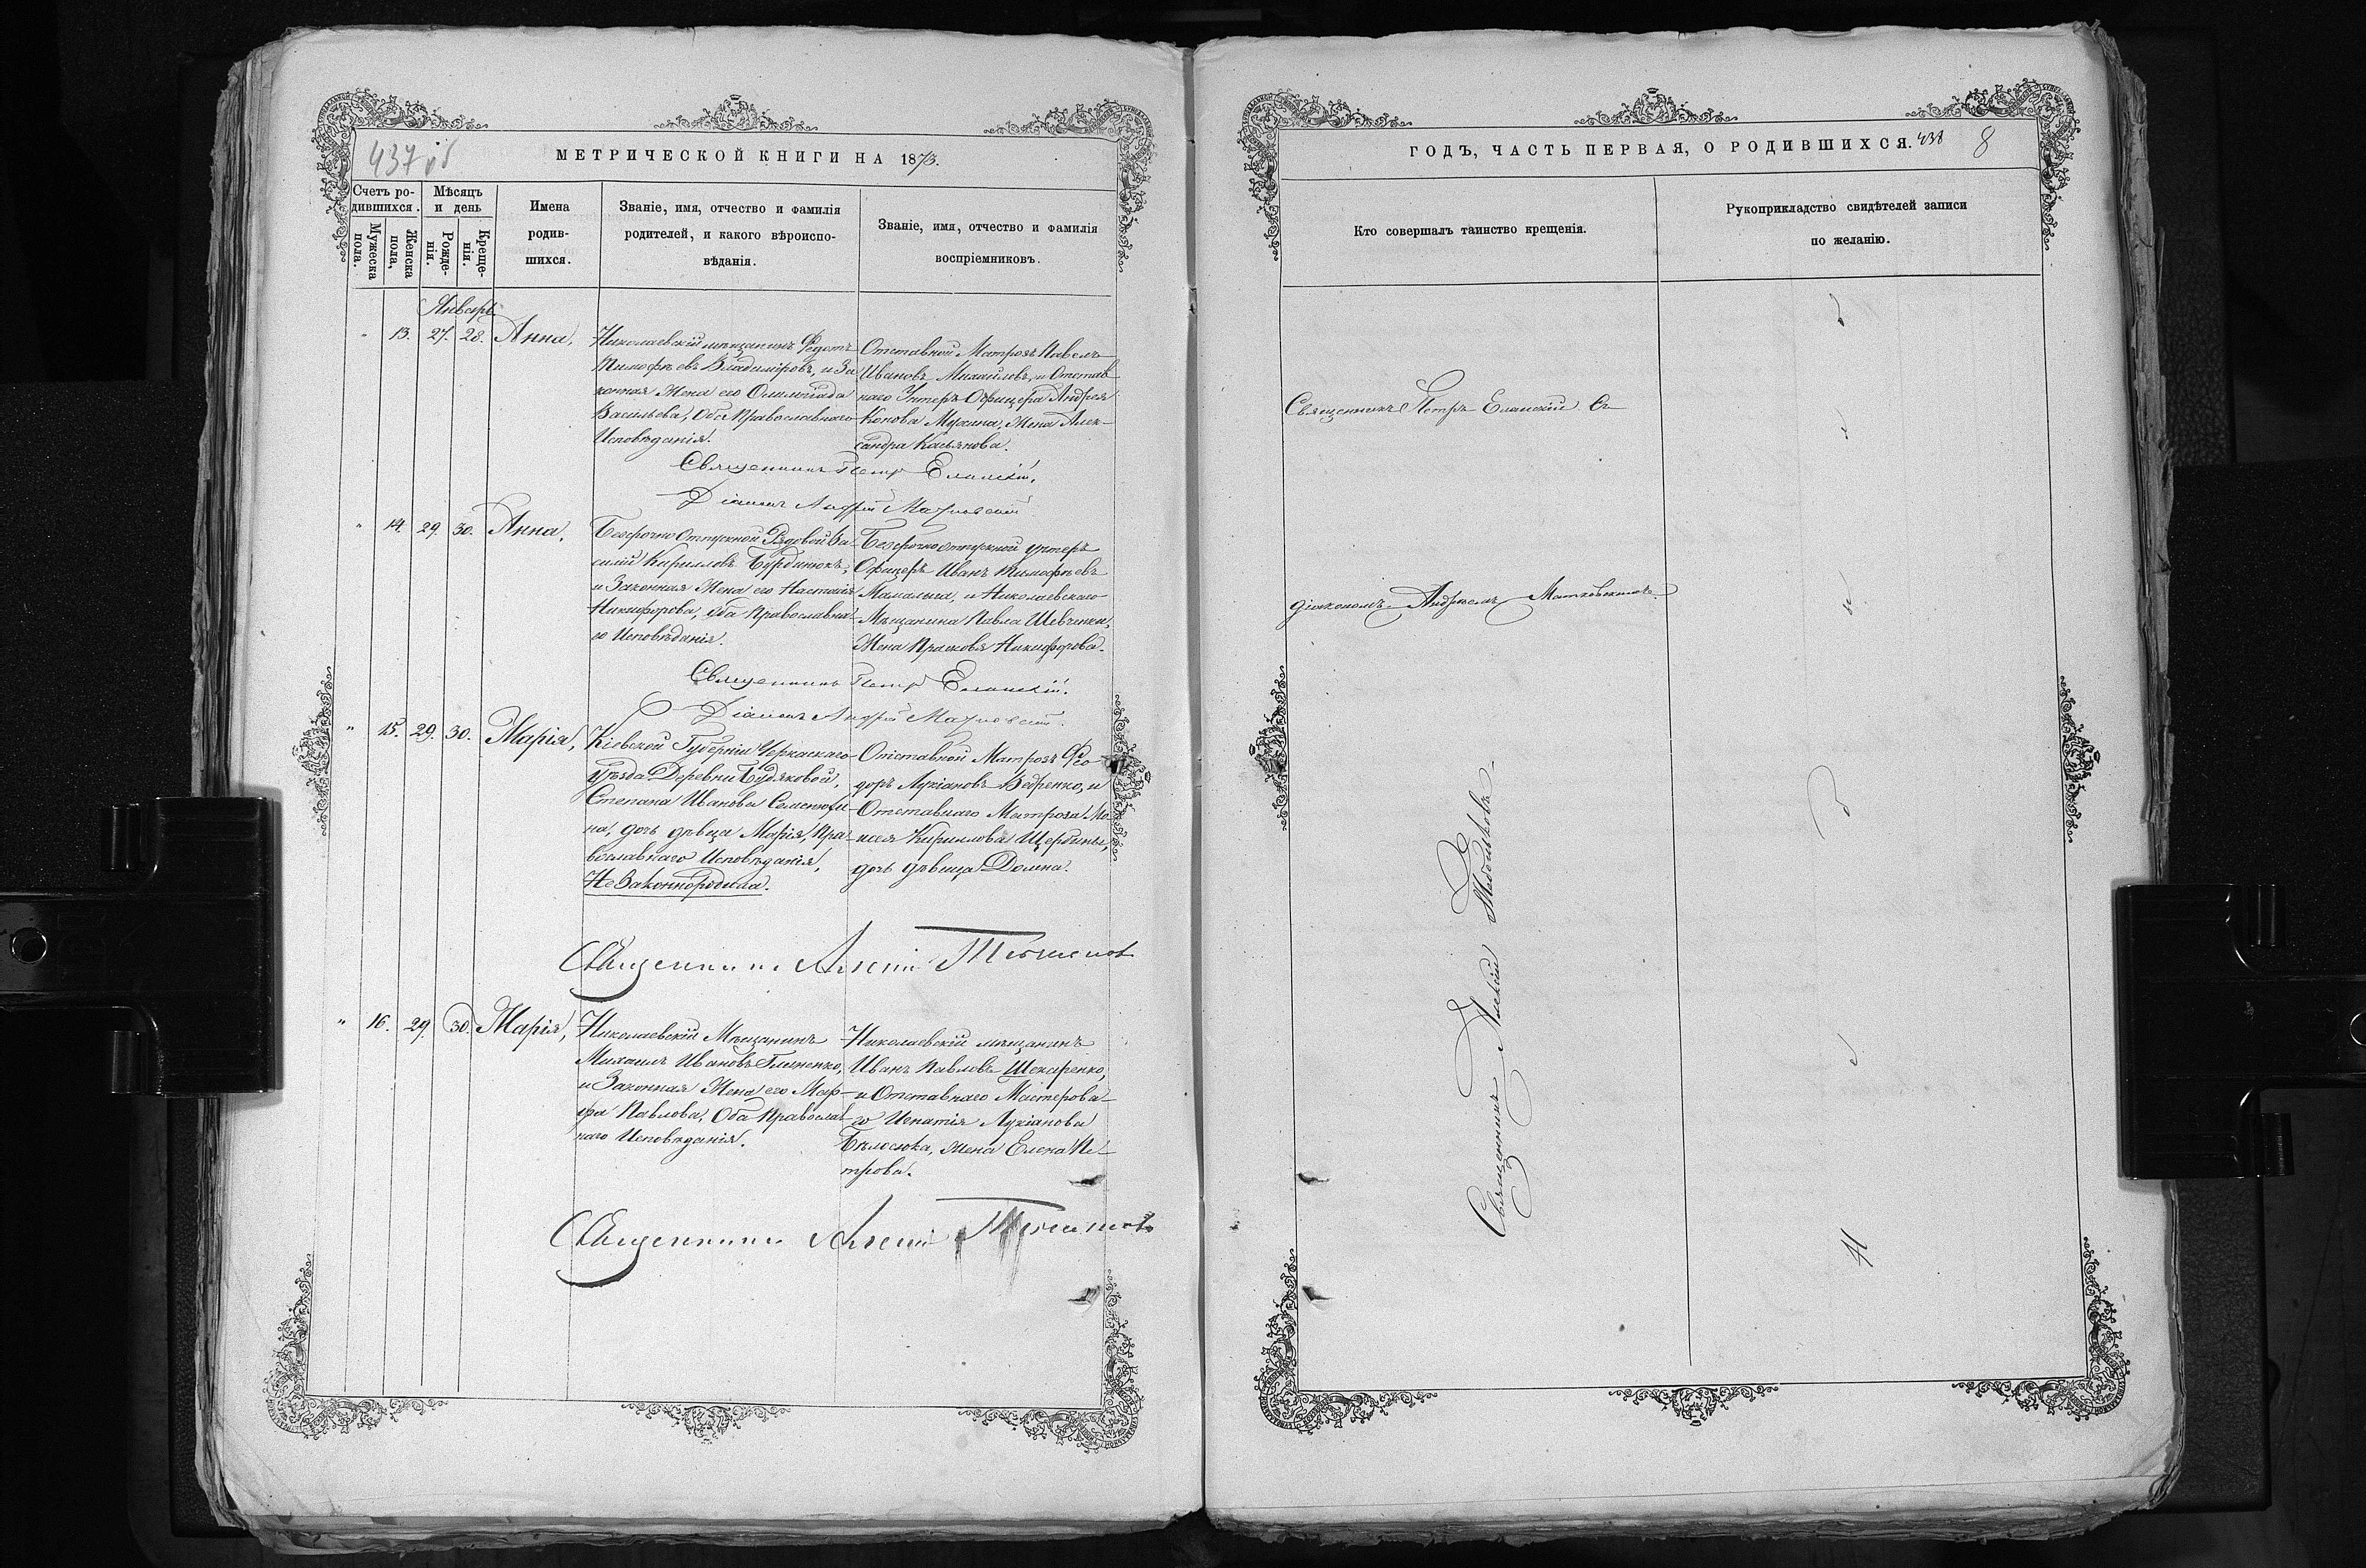 437 об
МЕТРИЧЕСКОЙ КНИГИ НА 1873.
Счетъ ро-
дившихся.
Мужеска
пола.
Женска
пола,
Мѣсяцъ
и день
Рожде-
нія.
Креще-
нія.
Имена
родив-
шихся.
Званіе, имя, отчество и фамилія
родителей, и какого вѣроиспо-
вѣданія.
Званіе, имя, отчество и фамилія
воспріемниковъ.
Январь
" 13. 27. 28. Анна,
Николаевскій мѣщанинъ Федотъ
Тимофѣевъ Владиміровъ, и За
конная Жена его
Васильева, Оба Православнаго
Исповѣданія.
Отставной Матрозъ Павелъ
Ивановъ Михайловъ, и Отстав
наго Унтеръ-Офицера Андрея
Конова Мухина, Жена Алек-
сандра Касьянова.
Священникъ Петръ Еланскій.
Діаконъ Андрей
" 14. 29. 30. Анна,
Безсрочно Отпускной Рядовой Ва-
силій Кирилловъ Бурдинюкъ,
и Законная Жена его Настасія
Никифорова, Оба Православна-
го Исповѣданія.
Безсрочноотпускной унтеръ
Офицеръ Иванъ Тимофѣевъ
и Николаевскаго
Мѣщанина Павла Шевченки,
Жена Прасковья Никифорова.
Священникъ Петръ Еланскій.
Діаконъ Андрей
" 15. 29. 30. Марія,
Кіевской Губерніи Черкаскаго
уѣзда Деревни Будяковой,
Степана Иванова
на, дочь дѣвица Марія, Пра-
вославнаго Исповѣданія,
НеЗаконнородила.
Отставной Матрозъ Фео-
доръ Лукіановъ Бодренко, и
Отставнаго Матроза Мо
исея Кириллова Щербины,
дочь дѣвица Домна.
Священникъ Алексій
" 16. 29. 30. Марія,
Николаевскій Мѣщанинъ
Михаилъ Ивановъ Глиненко,
и Законная Жена его Мар-
фа Павлова, Оба Православ
наго Исповѣданія.
Николаевскій мѣщанинъ
Иванъ Павловъ Шекаренко,
и Отставнаго Мастерова-
го Игнатія Лукіанова
Бѣлосюка, Жена Елена Пе-
трова.
Священникъ Алексій
ГОДЪ, ЧАСТЬ ПЕРВАЯ, О РОДИВШИХСЯ. 438 8
Кто совершалъ таинство крещенія.
Рукоприкладство свидѣтелей записи
по желанію.
Священникъ Петръ Еланскій Съ
діакономъ Андреемъ
Священникъ Алексій